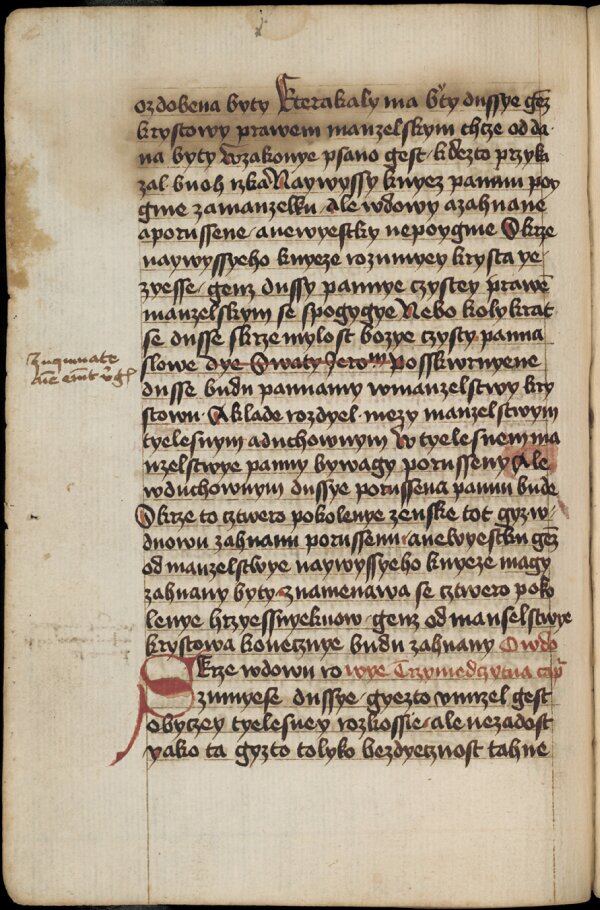 ozdobena byty Kterakaly ma byty dussye gez
krystowy prawem manzelskym chcze od da
na byty Wzakonye psano gest kdezto przyka
zal buoh rzka Naywyssy knyez pannu poy
gme zamanzelku Ale wdowy azahnane
aporussene anewyestky nepoygme Skrze
naywyssyeho knyeze rozumyey krysta ge
zysse genz dussy pannye czystey prawem
manzelskym se spogygye Nebo kolykrat
se dusse skrze mylost bozye czysty panna
slowe dye Swaty Jeronim posskwrnyene
dusse budu pannamy wmanzelstwy kry
stowu A klade rozdyel mezy manzelstwym
tyelesnym aduchownym W tyelesnem ma
nzelstwye panny bywagy porusseny Ale
wduchownym dussye porussena pannu bude
Skrze to cztwero pokolenye zenske tot gyz w
dowu zahnanu porussenu anewyestku gez
od manzelstwye naywyssyeho knyeze magy
zahnany byty znamenawa se cztwero poko
lenye hrzyessnyekuow genz od manselstwye
krystowa konecznye budu zahnany O wdo
Skrze wdowu ro wye Trzymedczytma cap
zumyese dussye gyezto umrzel gest
obyczey tyelesney rozkossie ale nezadost
yako ta gyzto tolyko bezdyecznost tahne